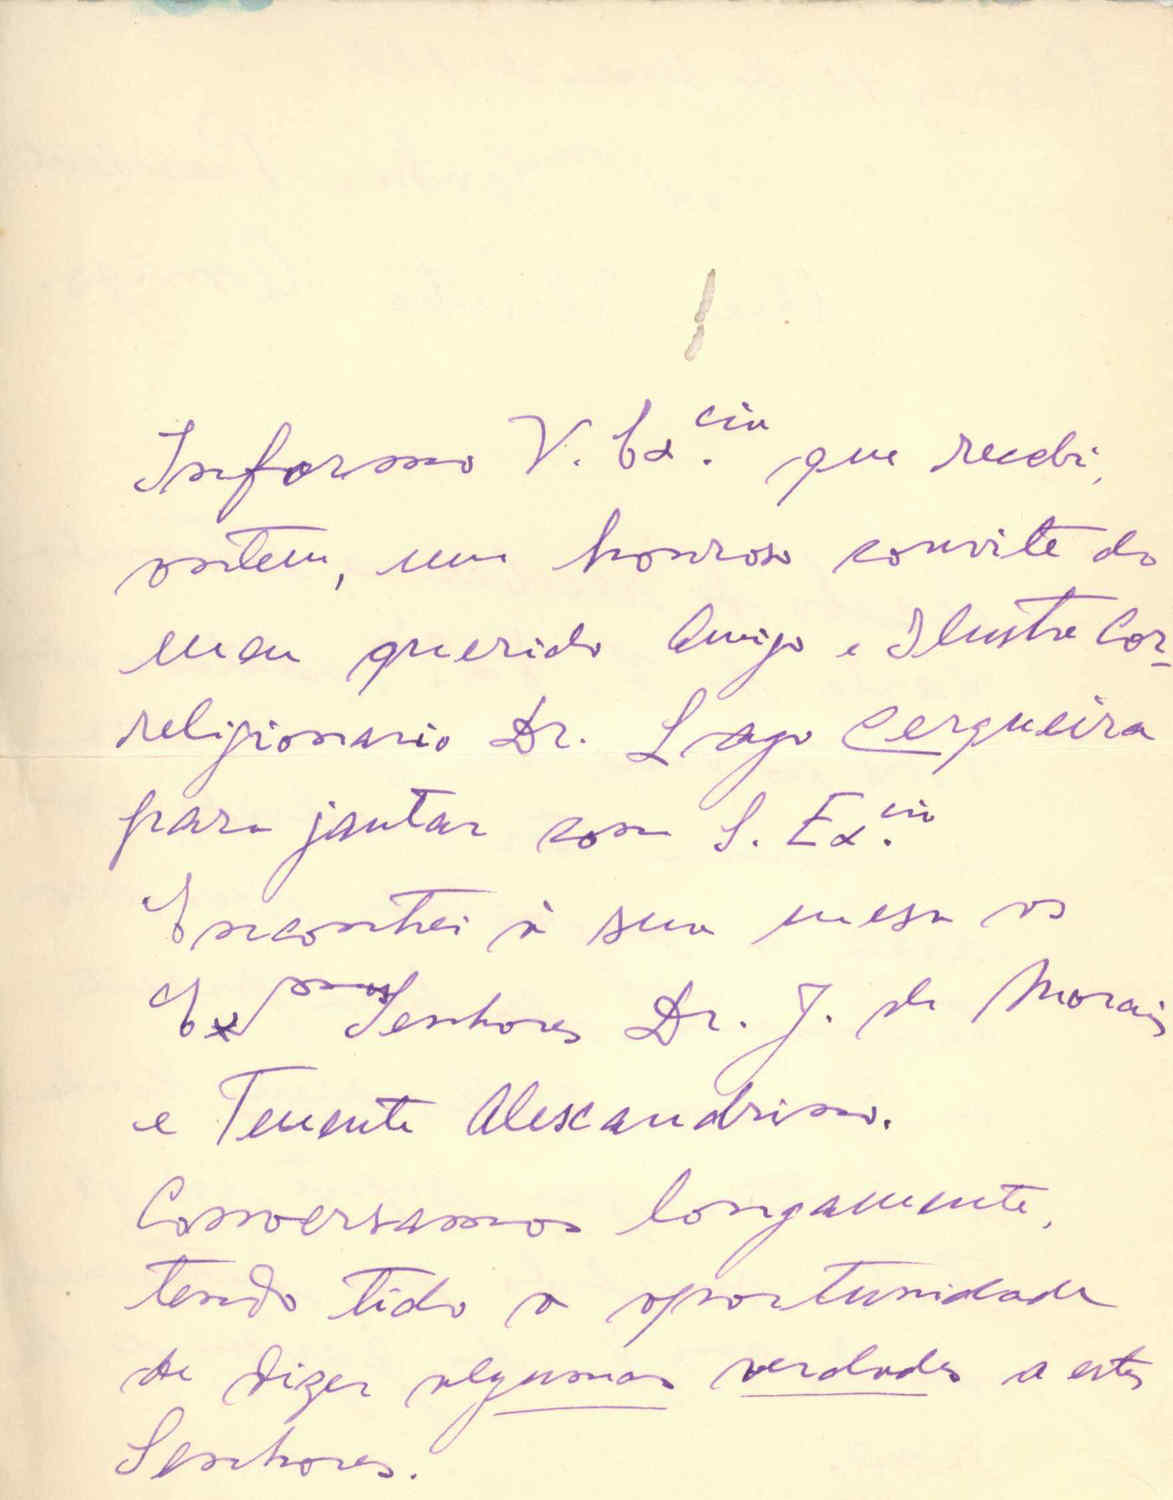 Informo V. Ex.cia que recebi,
ontem, um honroso convite do
meu querido Amigo e Ilustre Cor-
religionario Dr. Lago Cerqueira
para jantar com S. Ex.cia
Encontrei à sua mesa os
Exmos Senhores Dr. J. de Morais
e Tenente Alexandrino.
Conversamos longamente,
tendo tido a oportunidade
de dizer algumas verdades a estes
Senhores.